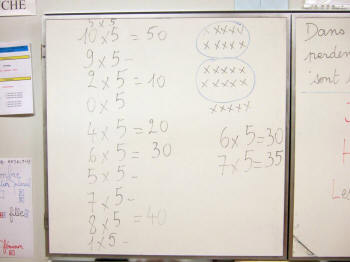 UCHE
5 x 5
10 x 5 = 50
9 x 5 -
2 x 5 = 10
0 x 5
4 x 5 = 20
6 x 5 = 30
5 x 5 -
7 x 5 -
8 x 5 = 40
1 x 5 -
x x x x x
x x x x x
x x x x x
x x x x x
x x x x x
6 x 5 = 30
7 x 5 = 35
Dans
perden
sont
J
H
Le